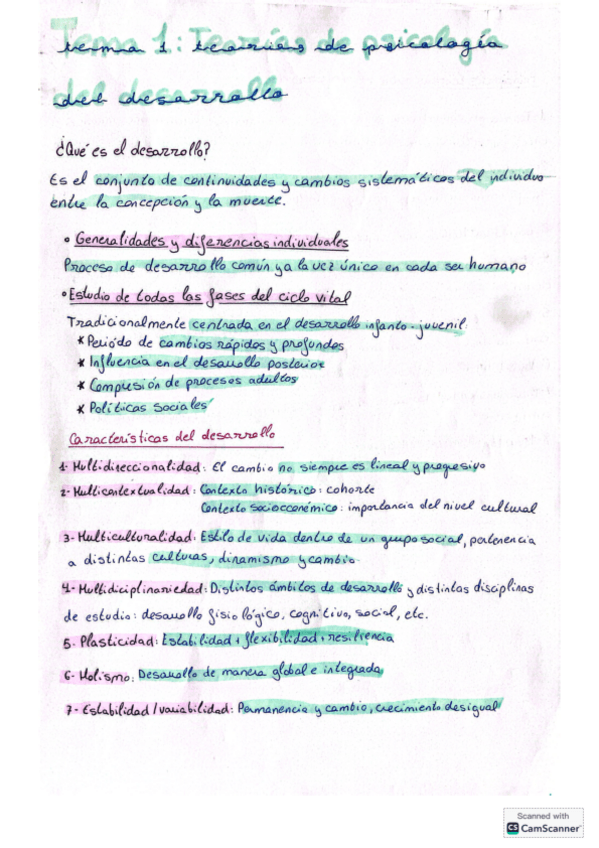 tema 1: teorías de psicología
del desarrollo
¿Qué es el desarrollo?
Es el conjunto de continuidades y cambios sistemáticos del individuo
entre la concepción y la muerte.
• Generalidades y diferencias individuales
Proceso de desarrollo común y a la vez único en cada ser humano
• Estudio de todas las fases del ciclo vital
Tradicionalmente centrada en el desarrollo infanto-juvenil:
* Periódo de cambios rápidos y profundos
* Influencia en el desarrollo posterior
* Compresión de procesos adultos
* Políticas sociales
Características del desarrollo
1- Multidireccionalidad: El cambio no siempre es lineal y progresivo
2- Multicontextualidad: Contexto histórico: cohorte
Contexto socioeconómico: importancia del nivel cultural
3- Multiculturalidad: Estilo de vida dentro de un grupo social, pertenencia
a distintas culturas, dinamismo y cambio.
4- Multidiciplinariedad: Distintos ámbitos de desarrollo y distintas disciplinas
de estudio: desarrollo fisiológico, cognitivo, social, etc.
5- Plasticidad: Estabilidad + flexibilidad + resiliencia
6- Holismo: Desarrollo de manera global e integrada
7- Estabilidad/variabilidad: Permanencia y cambio, crecimiento desigual
Scanned with
CS CamScanner